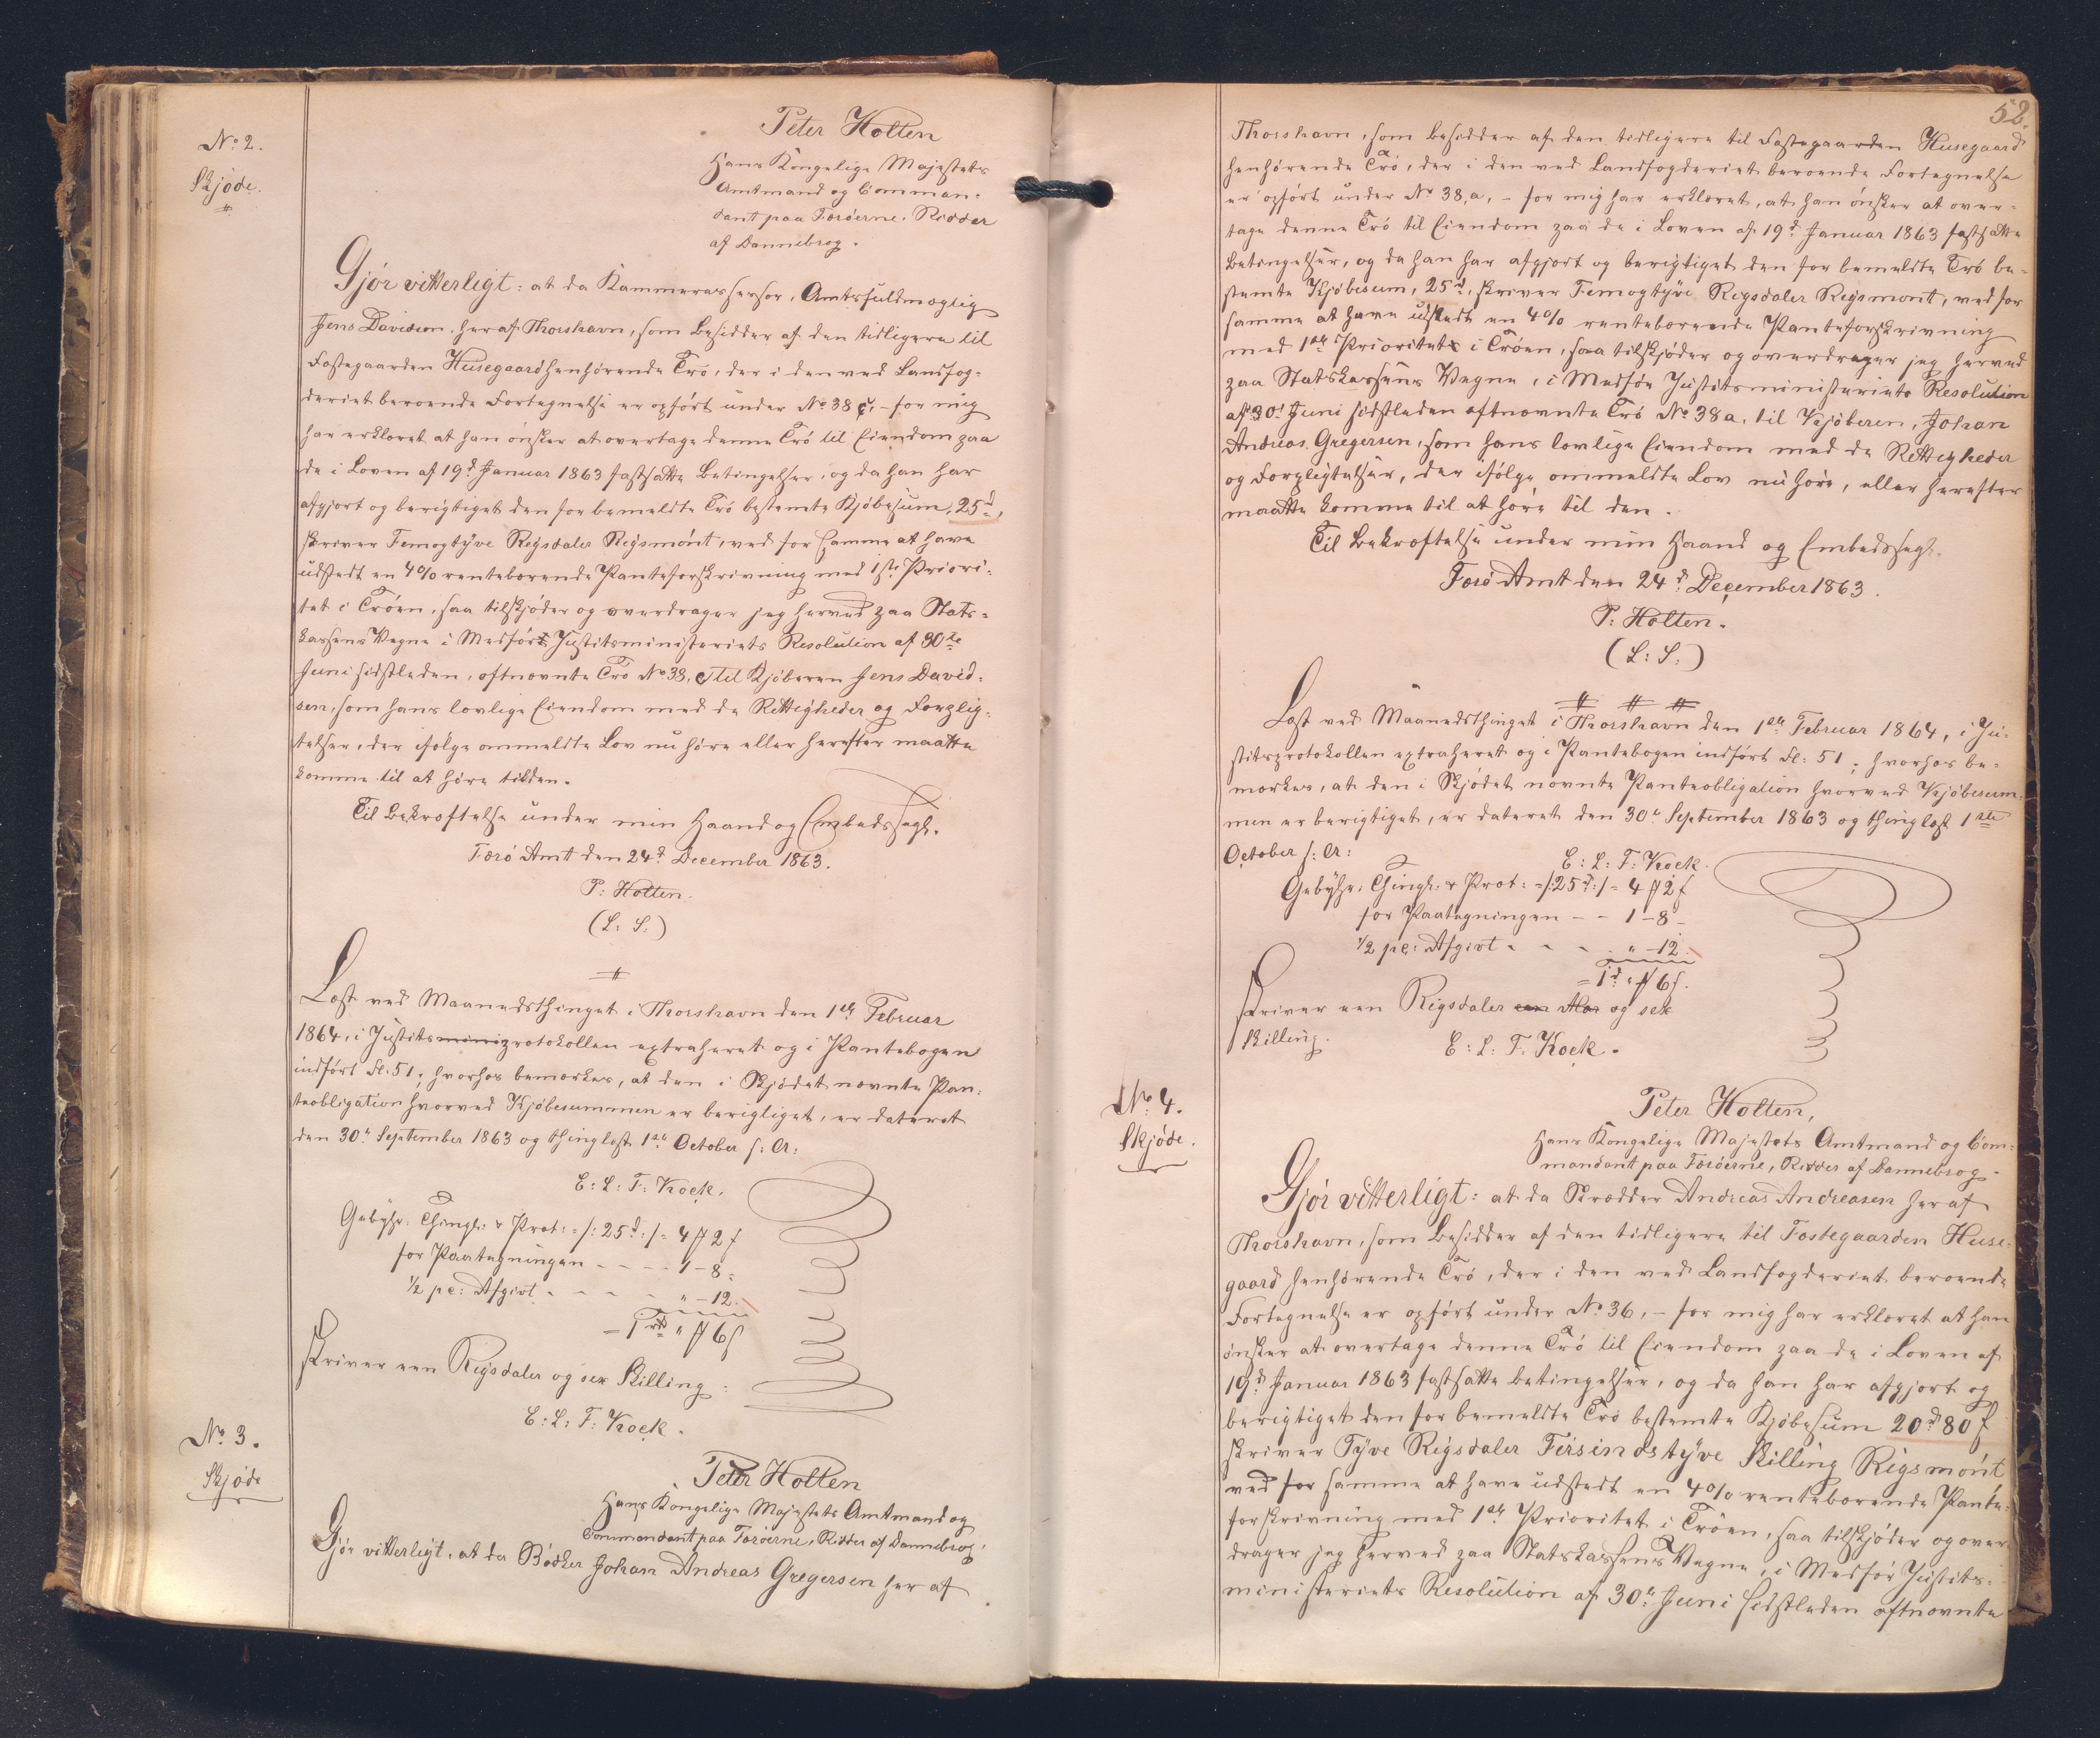 No 2.
Skjöde.
Peter Holten
Hans Kongelige Majestets
Amtmand og Comman-
dant paa Færöerne, Ridder
af Dannebrog.
Gjör vitterligt: at da Kammerassessor, Amtsfuldmægtig
Jens Davidsen, her af Thorshavn, som Besidder af den tidligere til
Fæstegaarden Huusegaard henhörende Trö, der i den ved Landfog-
deriet beroende Fortegnelse er opfört under No 38 c, - for mig
har erklæret at han önsker at overtage denne Trö til Eiendom paa
de i Loven af 19d Januar 1863 fastsatte Betingelser, og da han har
afgjort og berigtiget den for bemeldte Trö bestemte Kjöbesum, 25d,
skriver Femogtyve Rigsdaler Rigsmönt, ved for samme at have
udstedt en 4% rentebærende Panteforskrivning med 1ste Priori-
tet i Tröen, saa tilskjöder og overdrager jeg herved paa Stats-
kassens Vegne i Medför Justitsministeriets Resolution af 30te
Juni sidstleden, oftnævnte Trö No 38, c til Kjöberen Jens David-
sen, som hans lovlige Eiendom med de Rettigheder og Forplig-
telser, der ifölge ommeldte Lov nu höre eller herefter maatte
komme til at höre til den.
Til Bekræftelse under min Haand og Embedssegl.
Færö Amt den 24d December 1863.
P: Holten.
(L: S:)
Læst ved Maanedsthinget i Thorshavn den 1ste Februar
1864, i Justitsministprotokollen extraheret og i Pantebogen
indfört Fl. 51; hvorhos bemærkes, at den i Skjödet nævnte Pan-
teobligation hvorved Kjöbesummen er berigtiget, er dateret
den 30te September 1863 og thinglæst 1ste October s: A:
E: L: F: Kock.
Gebyhr: Thingl: & Prot: =/:25d:/= 4 # 2 s
for Paategningen - - - - 1 - 8 -
1/2 pc: Afgivt - - - - " - 12.
= 1 rd " # 6 s
skriver een Rigsdaler og sex Skilling:
E: L: F: Kock.
No 3.
Skjöde
Peter Holten
Hans Kongelige Majestets Amtmand og
Commandant paa Færöerne, Ridder af Dannebrog.
Gjör vitterligt, at da Bödker Johan Andreas Gregersen her af
52.
Thorshavn, som Besidder af den tidligere til Fæstegaarden Husegaard
henhörende Trö, der i den ved Landfogderiet beroende Fortegnelse
er opfört under No 38, a, - for mig har erklæret, at han önsker at over-
tage denne Trö til Eiendom paa de i Loven af 19d Januar 1863 fastsatte
Betingelser, og da han har afgjort og berigtiget den for bemeldte Trö be-
stemte Kjöbesum, 25d, skriver Femogtyve Rigsdaler Rigsmönt, ved for
samme at have udstedt en 4% rentebærende Panteforskrivning
med 1ste Prioritet i Tröen, saa tilskjöder og overdrager jeg herved
paa Statskassens Vegne, i Medför Justitsministeriets Resolution
af 30t Juni sidstleden oftnævnte Trö No 38a, til Kjöberen, Johan
Andreas Gregersen, som hans lovlige Eiendom med de Rettigheder
og Forpligtelser, der ifölge ommeldte Lov nu höre, eller herefter
maatte komme til at höre til den.
Til Bekræftelse under min Haand og Embedssegl.
Færö Amt den 24d December 1863.
P: Holten.
(L: S:)
Læst ved Maanedsthinget i Thorshavn den 1ste Februar 1864, i Ju-
stitsprotokollen extraheret og i Pantebogen indfört Fl: 51; hvorhos be-
mærkes, at den i Skjödet nævnte Panteobligation hvorved Kjöbesum-
men er berigtiget, er dateret den 30te September 1863 og thinglæst 1ste
October s: A:
E: L: F: Kock.
Gebyhr: Thingl: & Prot: =/:25d:/= 4 # 2 s
for Paategningen - - 1 - 8 -
1/2 pc: Afgivt - - - - " - 12.
= 1d " # 6 s.
skriver een Rigsdaler een Mar og sex
Skilling.
E: L: F. Kock.
No 4.
Skjöde.
Peter Holten,
Hans Kongelige Majestets Amtmand og Com-
mandant paa Færöerne, Ridder af Dannebrog.
Gjör vitterligt: at da Skrædder Andreas Andreasen her af
Thorshavn, som Besidder af den tidligere til Fæstegaarden Huse-
gaard henhörende Trö, der i den ved Landfogderiet beroende
Fortegnelse er opfört under No 36, - for mig har erklæret at han
önsker at overtage denne Trö til Eiendom paa de i Loven af
19d Januar 1863 fastsatte betingelser, og da han har afgjort og
berigtiget den for bemeldte Trö bestemte Kjöbesum 20d 80 s
skriver Tyve Rigsdaler Firsindstyve Skilling Rigsmönt
ved for samme at have udstedt en 4% rentebærende Pante-
forskrivning med 1ste Prioritet i Tröen, saa tilskjöder og over-
drager jeg herved paa Statskassens Vegne, i Medför Justits-
ministeriets Resolution af 30te Juni sidstleden oftnævnte